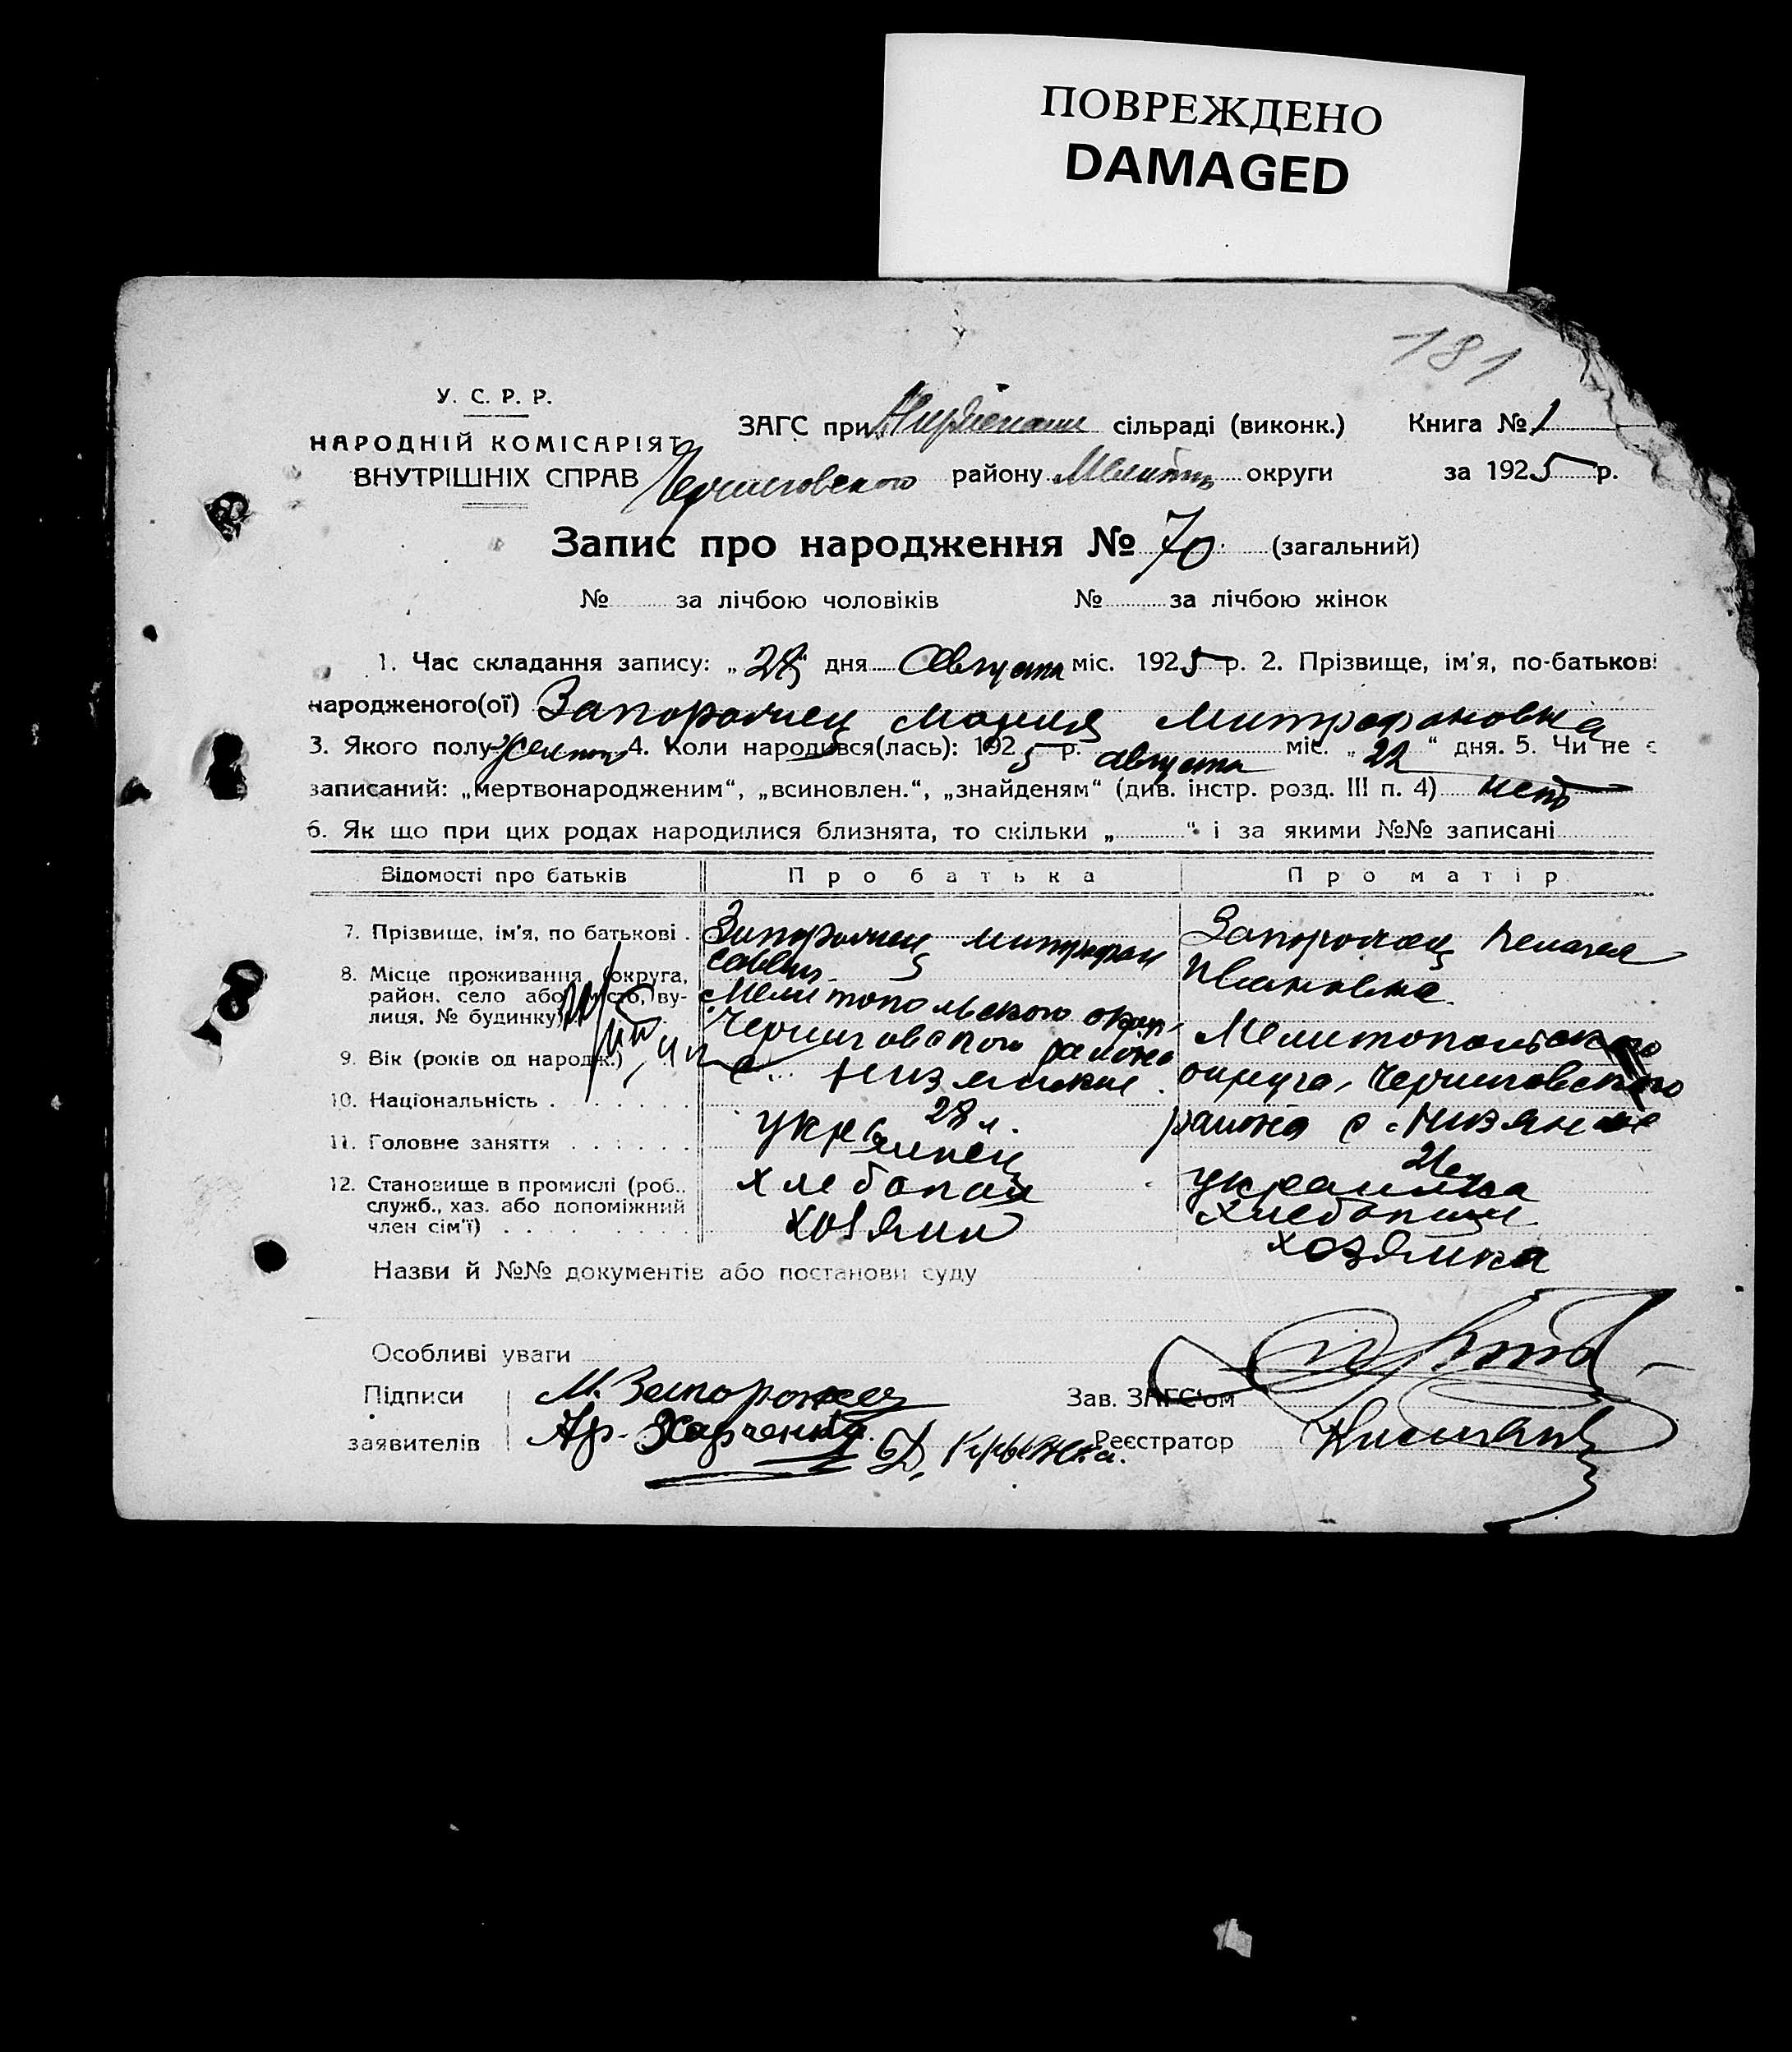 ПОВРЕЖДЕНО
DAMAGED
181
У. С. Р. Р.
НАРОДНІЙ КОМІСАРІЯТ
ВНУТРІШНІХ СПРАВ
ЗАГС при сільраді (виконк.) Книга № 1
Черниговского району Мелитоп округи за 1925 р.
Запис про народження № 70 (загальний)
№ за лічбою чоловіків № за лічбою жінок
1. Час складання запису: „28“ дня Августа міс. 1925 р. 2. Прізвище, ім'я, по-батькові
народженого(ої) Запорожец Митрофановна
3. Якого полу женск 4. Коли народився(лась): 1925 р. августа міс. „22“ дня. 5. Чи не є
записаний: „мертвонародженим“, „всиновлен.“, „знайденям“ (див. інстр. розд. III п. 4) нет
6. Як що при цих родах народилися близнята, то скільки „ “ і за якими №№ записані
Відомості про батьків Про батька Про матір
7. Прізвище, ім'я, по батькові . Запорожец Митрофан Саввич Запорожец Пелагея Ивановна
8. Місце проживання (округа, район, село або місто, вулиця, № будинку) Мелитопольского округ Черниговского района с. Низяники Мелитопольского округа, Черниговского района с. Низяние
9. Вік (років од народж.) 28 л. 21
10. Національність . . . . . . . украинец украинка
11. Головне заняття . . . . . . хлебопаш хлебопаш
12. Становище в промислі (роб., служб., хаз. або допоміжний член сім'ї) . . . . . . . . хозяин хозяйка
Назви й №№ документів або постанови суду
Особливі уваги
Підписи М. Запорожец Зав. ЗАГС'ом
заявителів Ар. Харченко Реєстратор